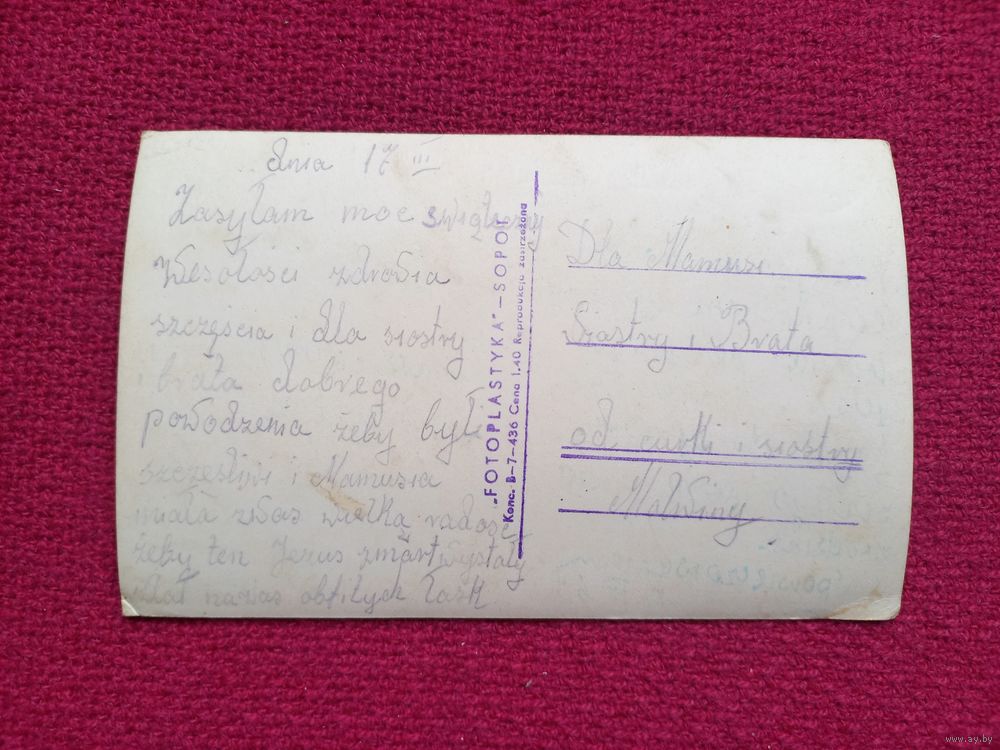 dnia 17 III
Zasyłam moc
Wesołosci zdrowia
szczęścia i dla siostry
i brata dobrego
powodzenia żeby byli
i Mamusia
miała zwas wielką radość
żeby ten Jezus zmartwystały
nawas obfitych łask
„FOTOPLASTYKA” – SOPOT
Konc. B-7-436 Cena 1.40 Reprodukcja zastrzeżona
Dla Mamusi
Siostry i Brata
od curki i siostry
Malwiny
www.ay.by